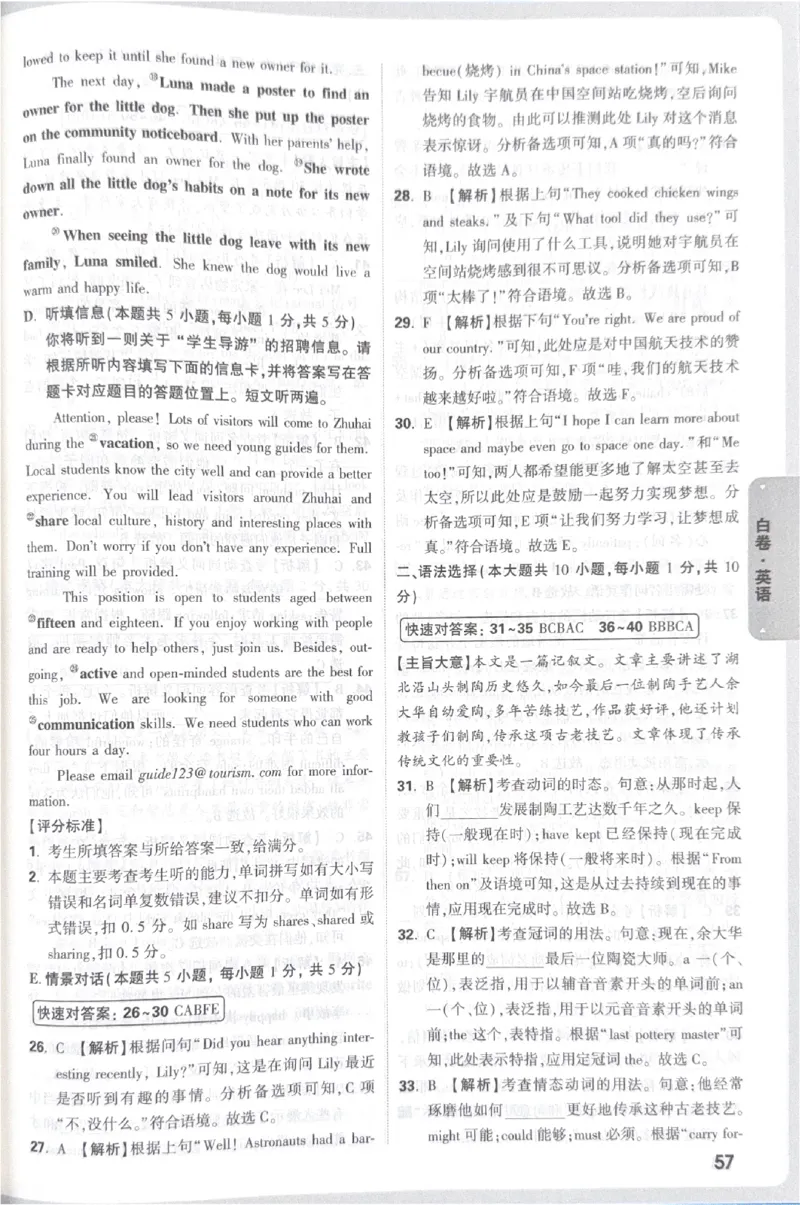 lowed to keep it until she found a new owner for it.
The next day, ⑱Luna made a poster to find an
owner for the little dog. Then she put up the poster
on the community noticeboard. With her parents' help,
Luna finally found an owner for the dog. ⑲She wrote
down all the little dog's habits on a note for its new
owner.
⑳When seeing the little dog leave with its new
family, Luna smiled. She knew the dog would live a
warm and happy life.
D. 听填信息(本题共 5 小题,每小题 1 分,共 5 分)
你将听到一则关于“学生导游”的招聘信息。请
根据所听内容填写下面的信息卡,并将答案写在答
题卡对应题目的答题位置上。短文听两遍。
Attention, please! Lots of visitors will come to Zhuhai
during the ㉑vacation, so we need young guides for them.
Local students know the city well and can provide a better
experience. You will lead visitors around Zhuhai and
㉒share local culture, history and interesting places with
them. Don't worry if you don't have any experience. Full
training will be provided.
This position is open to students aged between
㉓fifteen and eighteen. If you enjoy working with people
and are ready to help others, just join us. Besides, out-
going, ㉔active and open-minded students are the best for
this job. We are looking for someone with good
㉕communication skills. We need students who can work
four hours a day.
Please email guide123@tourism.com for more infor-
mation.
【评分标准】
1. 考生所填答案与所给答案一致,给满分。
2. 本题主要考查考生听的能力,单词拼写如有大小写
错误和名词单复数错误,建议不扣分。单词如有形
式错误,扣 0.5 分。如 share 写为 shares、shared 或
sharing,扣 0.5 分。
E. 情景对话(本题共 5 小题,每小题 1 分,共 5 分)
快速对答案:26~30 CABFE
26. C 【解析】根据问句“Did you hear anything inter-
esting recently, Lily?”可知,这是在询问 Lily 最近
是否听到有趣的事情。分析备选项可知,C 项
“不,没什么。”符合语境。故选 C。
27. A 【解析】根据上句“Well! Astronauts had a bar-
becue(烧烤) in China's space station!”可知,Mike
告知 Lily 宇航员在中国空间站吃烧烤,空后询问
烧烤的食物。由此可以推测此处 Lily 对这个消息
表示惊讶。分析备选项可知,A 项“真的吗?”符合
语境。故选 A。
28. B 【解析】根据上句“They cooked chicken wings
and steaks.”及下句“What tool did they use?”可
知,Lily 询问使用了什么工具,说明她对宇航员在
空间站烧烤感到很不可思议。分析备选项可知,B
项“太棒了!”符合语境。故选 B。
29. F 【解析】根据下句“You're right. We are proud of
our country.”可知,此处应是对中国航天技术的赞
扬。分析备选项可知,F 项“哇,我们的航天技术
越来越好啦。”符合语境。故选 F。
30. E 【解析】根据上句“I hope I can learn more about
space and maybe even go to space one day.”和“Me
too!”可知,两人都希望能更多地了解太空甚至去
太空,所以此处应是鼓励一起努力实现梦想。分
析备选项可知,E 项“让我们努力学习,让梦想成
真。”符合语境。故选 E。
二、语法选择(本大题共 10 小题,每小题 1 分,共 10
分)
快速对答案:31~35 BCBAC 36~40 BBBCA
【主旨大意】本文是一篇记叙文。文章主要讲述了湖
北沿山头制陶历史悠久,如今最后一位制陶手艺人余
大华自幼爱陶,多年苦练技艺,作品获好评,他还计划
教孩子们制陶,传承这项古老技艺。文章体现了传承
传统文化的重要性。
31. B 【解析】考查动词的时态。句意:从那时起,人
们______发展制陶工艺达数千年之久。keep 保
持(一般现在时);have kept 已经保持(现在完成
时);will keep 将保持(一般将来时)。根据“From
then on”及语境可知,这是从过去持续到现在的事
情,应用现在完成时。故选 B。
32. C 【解析】考查冠词的用法。句意:现在,余大华
是那里的______最后一位陶瓷大师。a 一(个、
位),表泛指,用于以辅音音素开头的单词前;an
一(个、位),表泛指,用于以元音音素开头的单词
前;the 这个,表特指。根据“last pottery master”可
知,此处表示特指,应用定冠词 the。故选 C。
33. B 【解析】考查情态动词的用法。句意:他经常
琢磨他如何______更好地传承这种古老技艺。
might 可能;could 能够;must 必须。根据“carry for-
白卷·英语
57